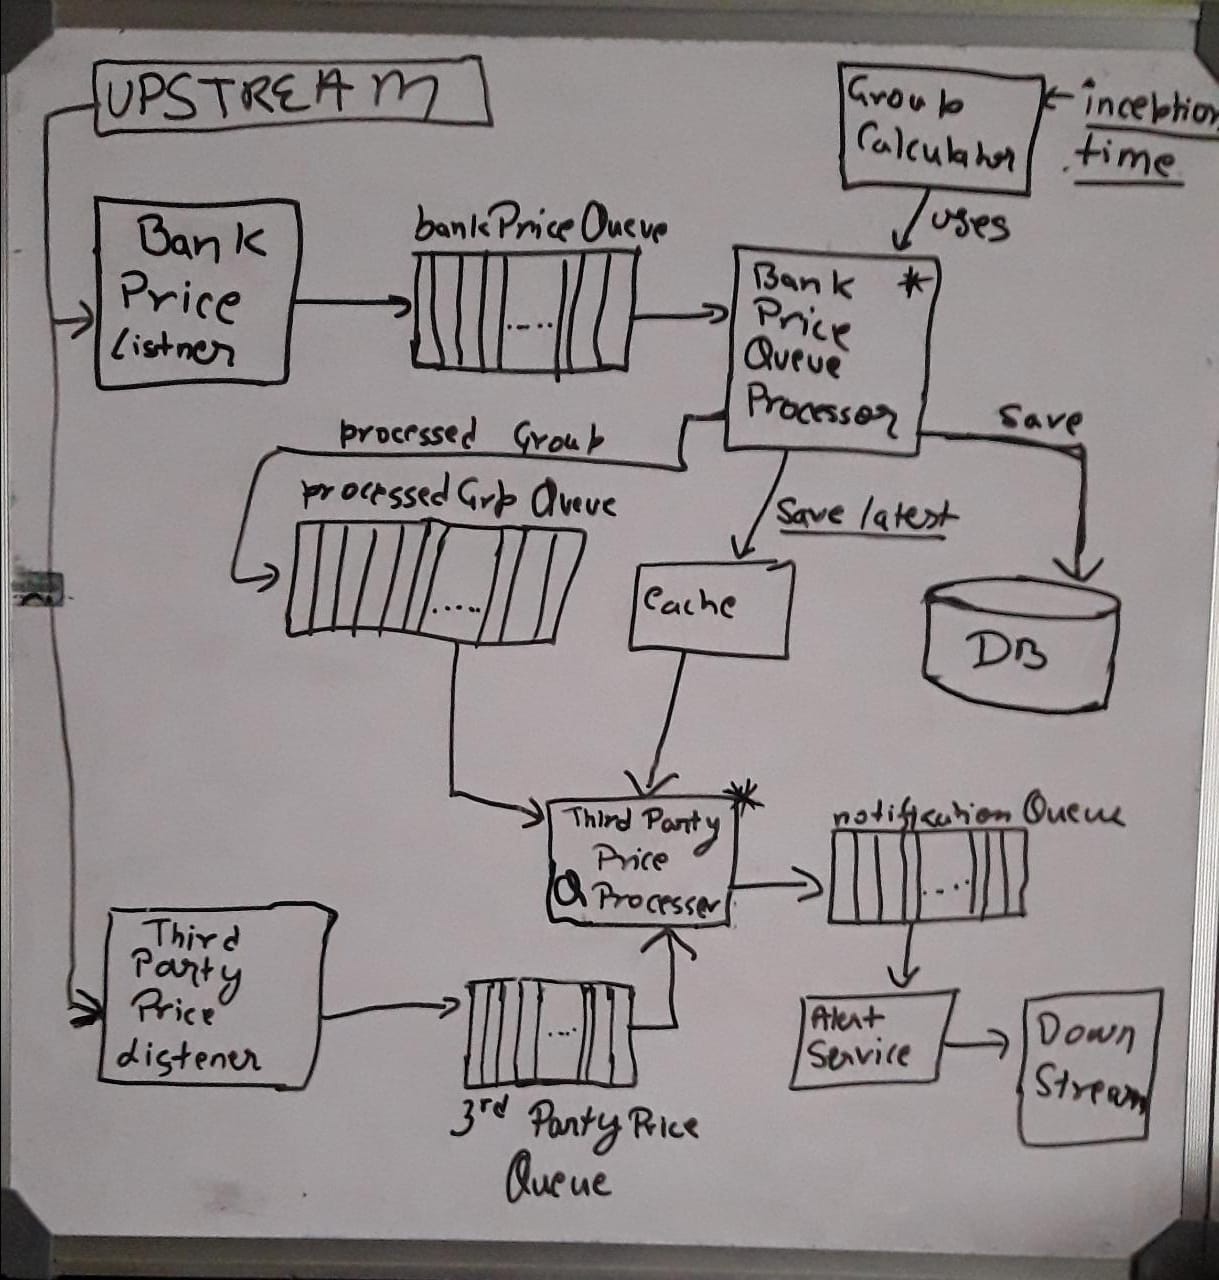 UPSTREAM
Group
Calculator
inception
time
uses
Bank
Price
Listner
bankPriceQueue
....
Bank *
Price
Queue
Processor
Save
processed Group
processedGrp Queue
.....
Save latest
Cache
DB
Third Party *
Price
Q Processer
notification Queue
....
Third
Party
Price
Listener
....
3rd Party Price
Queue
Alert
Service
Down
Stream